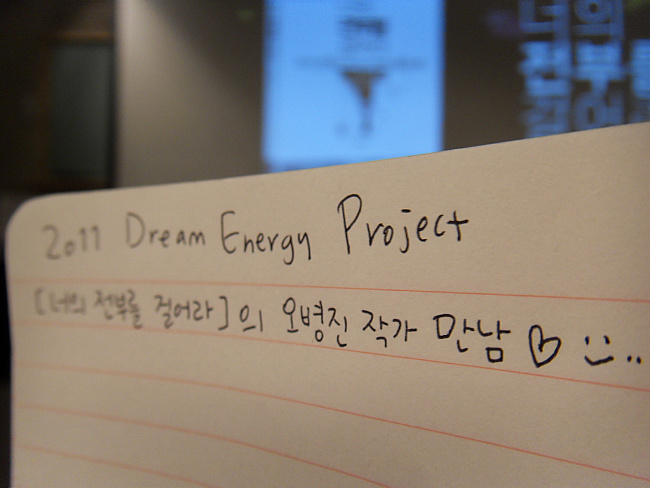 2011 Dream Energy Project
[너의 전부를 걸어라]의 오병진 작가 만남♡ :)..